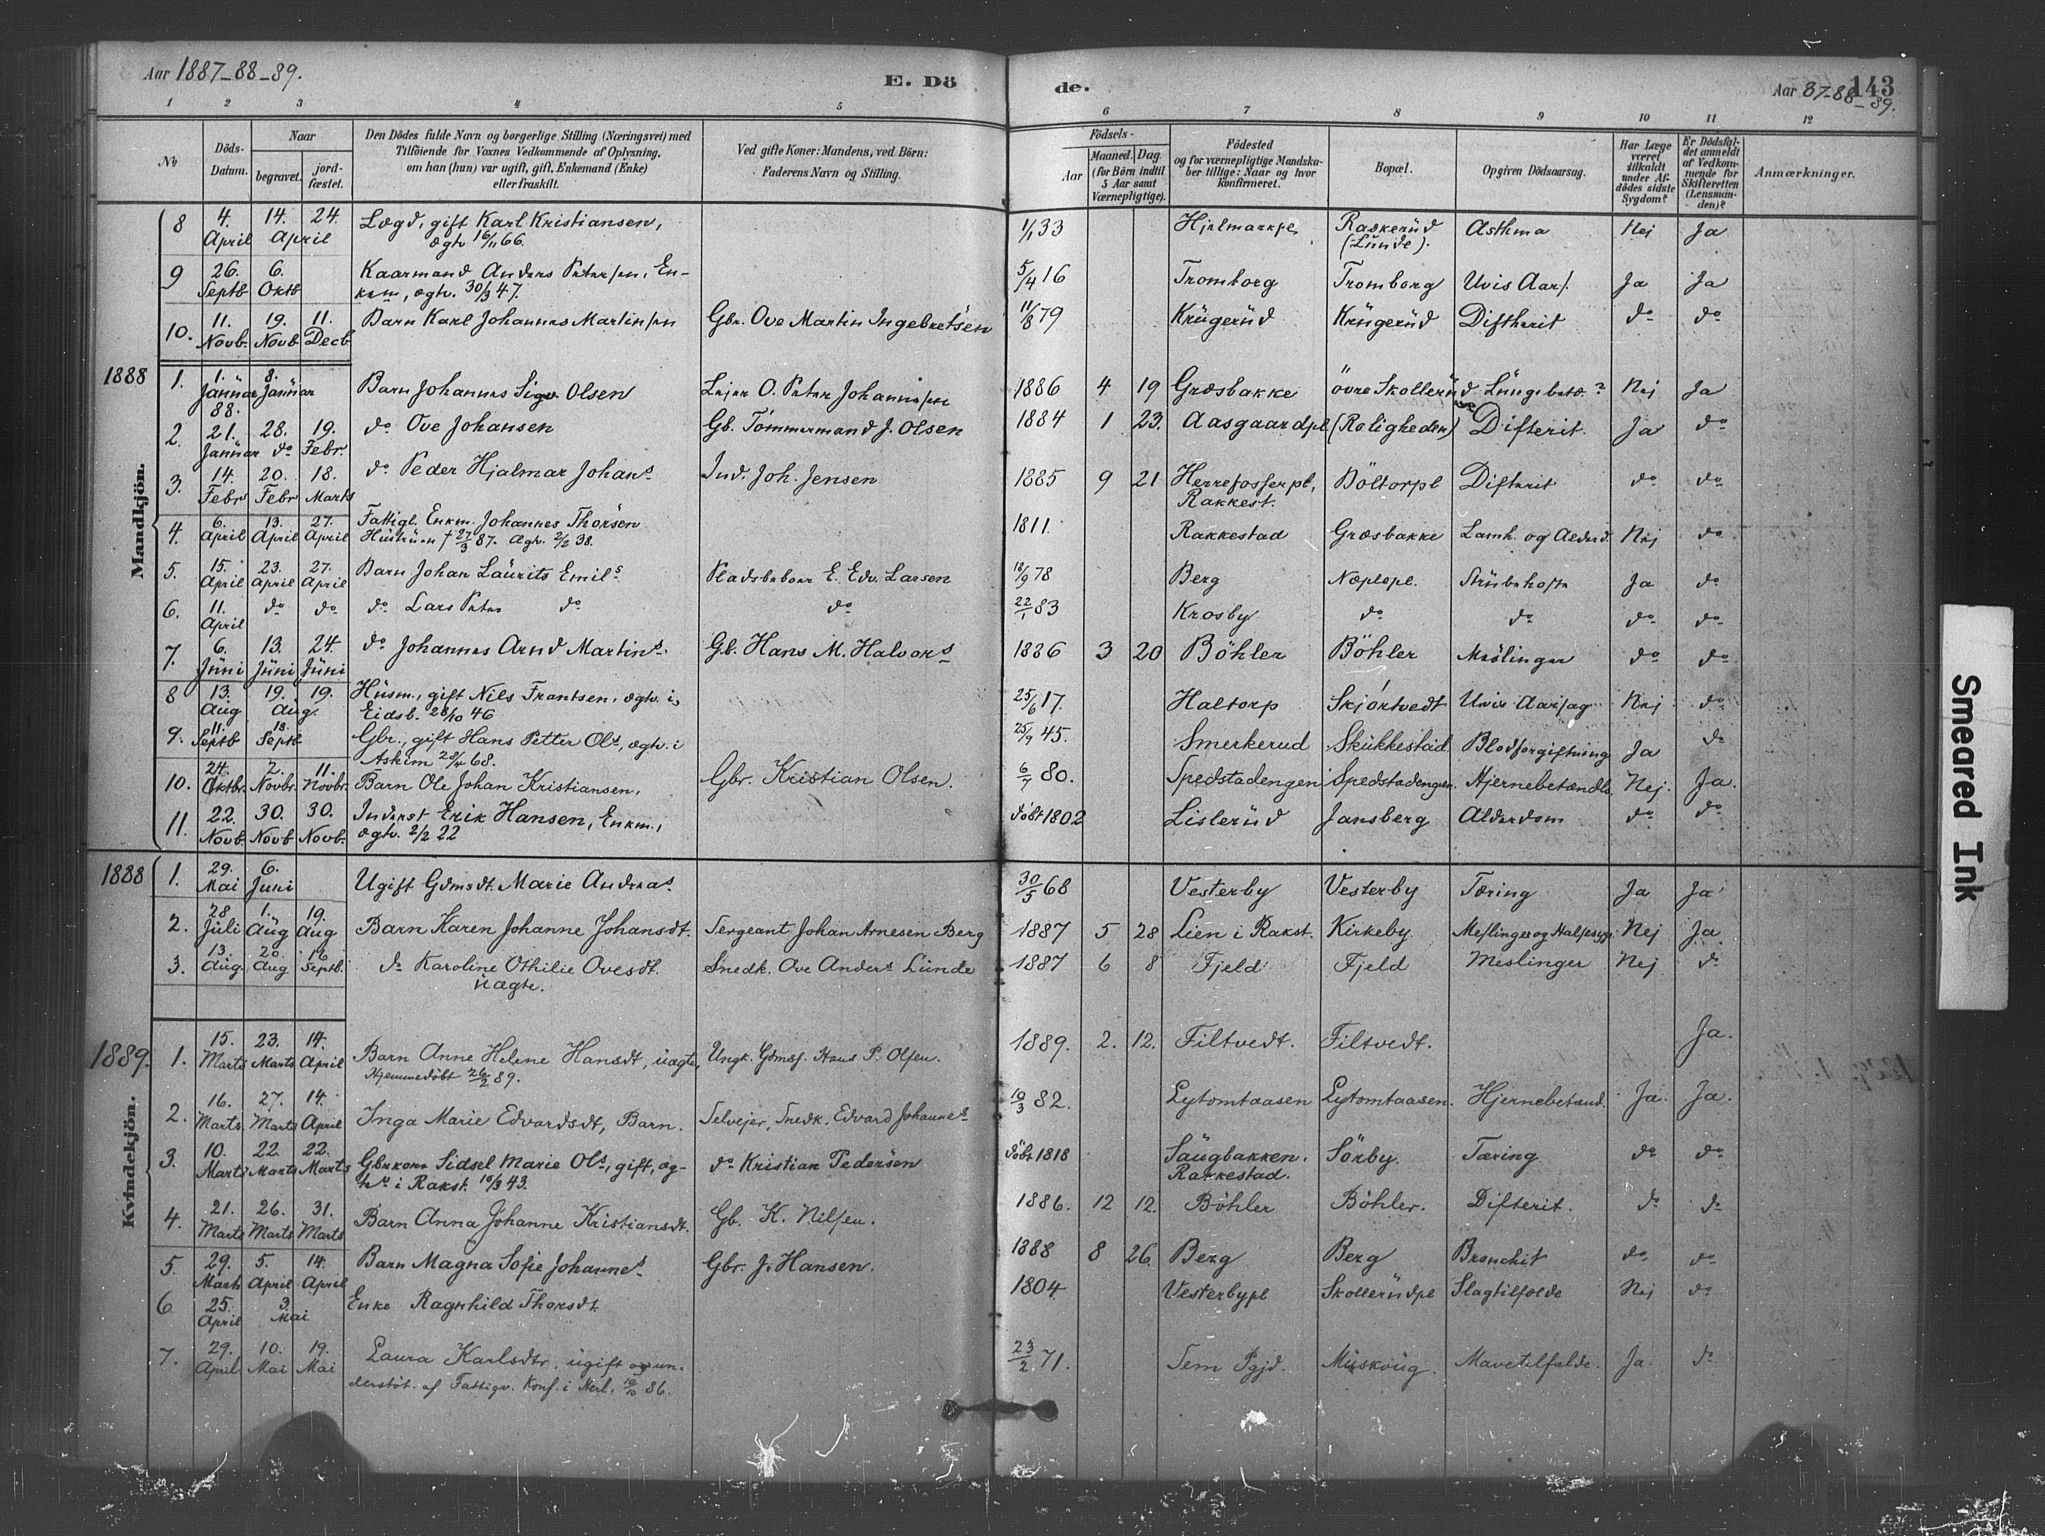 Aar 1887-88-89.
E. Dö
de.
Aar 87-88-89.
143
1 2 3 4 5 6 7 8 9 10 11 12
No
Döds-Datum.
Naar
begravet.
jord-fæstet.
Den Dödes fulde Navn og borgerlige Stilling (Næringsvei) med
Tilföiende for Voxnes Vedkommende af Oplysning,
om han (hun) var ugift, gift, Enkemand (Enke)
eller fraskilt.
Ved gifte Koner: Mandens, ved Börn:
Faderens Navn og Stilling.
Födsels-
Aar
Maaned. Dag.
(for Börn indtil
5 Aar samt
Værnepligtige).
Födested
og for værnepligtige Mandska-
ber tillige: Naar og hvor
konfirmeret.
Bopæl.
Opgiven Dödsaarsag.
Har Læge
været
tilkaldt
under Af-
dödes sidste
Sygdom?
Er Dödsfal-
det anmeldt
af Vedkom-
mende for
Skifteretten
(Lensman-
den)?
Anmærkninger.
Mandkjön.
8 4. April 14. 24. April Lægd, gift Karl Kristiansen, ægtv 16/11 66. 1/1 33 Hjelmarkpl Raskerüd (Lünde). Asthma Nej Ja
9 26. Septb 6. Oktb Kaarmand Anders Petersen, En-
kem, ægtv. 30/3 47. 5/4 16 Tromborg Tromborg Uvis Aars. Ja Ja
10. 11. Novb. 19. Novb 11. Decb. Barn Karl Johannes Martinsen Gbr. Ove Martin Ingebretsen 11/8 79 Krügerüd Krügerüd Diftherit do do
1888
1. 1. Jänüar 88. 8. Jänüar Barn Johannes Sigv Olsen Lejer O. Peter Johannesen 1886 4 19 Græsbakke övre Skollerüd Lüngebetæ. Nej Ja
2. 21. Jänüar 28. do 19. Febr. do Ove Johansen Gb. Tömmermand J. Olsen 1884 1 23. Aasgaardpl (Roligheden) Difterit. Ja do
3. 14. Febr 20. Febr 18. Marts do Peder Hjalmar Johans. Ind. Joh. Jensen 1885 9 21 Herrefosserpl, Rakkest. Böltorpl Difterit do do
4. 6. April 13. April 27. April Fattigl. Enkm. Johannes Thorsen
Hüstrüen † 27/3 87. Ægtv. 2/2 38. 1811. Rakkestad Græsbakke Lamh. og Alderd. Nej do
5. 15. April 23. April 27. April Barn Johan Laürits Emils. Pladsbeboer E. Edv. Larsen 18/9 78 Berg Næplepl. Strübehoste Ja do
6. 11. April do do do Lars Peter do do 22/1 83 Krosby do do do do
7. 6. Jüni 13. Jüni 24. Jüni do Johannes Arnd Martins. Gb. Hans M. Halvors. 1886 3 20 Böhler Böhler Meslinger do do
8 13. Aug 19. 19. Aug. Hüsm., gift Nils Frantsen, ægtv. i
Eidsb. 28/10 46 25/6 17. Haltorp Skjörtvedt Uvis Aarsag Nej do
9. 11. Septb 18. Septb Gbr., gift Hans Petter Ols, ægtv. i
Askim 68. 25/9 45. Smerkerud Skükkestad. Blodforgiftning Ja do
10. 24. Oktbr. 2. Novbr. 11. Novbr. Barn Ole Johan Kristiansen, Gbr. Kristian Olsen. 6/7 80. Spedstadengen Spedstadengen. Hjernebetændls. Nej. Ja.
11. 22. Novb. 30. Novb 30. Novb. Inderst Erik Hansen, Enkm.,
ægtv. 2/2 22 döbt 1802 Lislerüd Jansberg Alderdom do do
Kvindekjön.
1888
1. 29. Mai 6. Juni Ugift Gdmsdt. Marie Andreas. 30/5 68 Vesterby Vesterby Tæring Ja Ja
2. 28 Jüli 1. Aüg 19. Aug Barn Karen Johanne Johansdt. Sergeant Johan Arnesen Berg 1887 5 28 Lien i Rakst. Kirkeby Meslinger og Halssyge Nej Ja
3. 13. Aüg. 20. Aug 16 Septb. do Karoline Othilie Ovesdt.
üægte. Snedk. Ove Anders. Lünde 1887 6 8 Fjeld Fjeld Meslinger Nej do
1889.
1. 15. Marts 23. Marts 14. April Barn Anne Helene Hansdt, üægte,
Hjemmedöbt 26/2 89. Ungk. Gdmsf. Hans P. Olsen. 1889. 2. 12. Filtvedt. Filtvedt. Ja.
2. 16. Marts 27. Marts 14. April Inga Marie Edvardsdt, Barn. Selvejer, Snedk. Edvard Johannes. 10/3 82. Lytomtaasen Lytomtaasen. Hjernebetænd. Ja. Ja.
3. 10. Marts 22. Marts 22. Marts Gbrkone Sidsel Marie Ols, gift, æg-
tv i Rakst. 10/3 43. do Kristian Pedersen döbt 1818 Saügbakken, Rakkestad. Sörby. Tæring do do
4. 21. Marts 26. Marts 31. Marts Barn Anna Johanne Kristiansdt. Gb. K. Nilsen. 1886. 12 12. Böhler Böhler. Difterit. do do
5. 29. Marts 5. April 14. April Barn Magna Sofie Johannes. Gbr. J. Hansen. 1888 8 26. Berg Berg Bronchit do do
6. 25. April 3. Mai Enke Ragnhild Thorsdt. 1804. Vesterbypl Skollerüdpl Slagtilfælde Nej do
7. 29. April 10. Mai 19. Mai Laura Karlsdtr, ugift og un-
derstöt. af Fattigv. Konf. i Nerl. 10/10 86. 23/2 71. Sem Pgjd. Müskoüg. Mavetilfælde. Ja. do
Smeared Ink